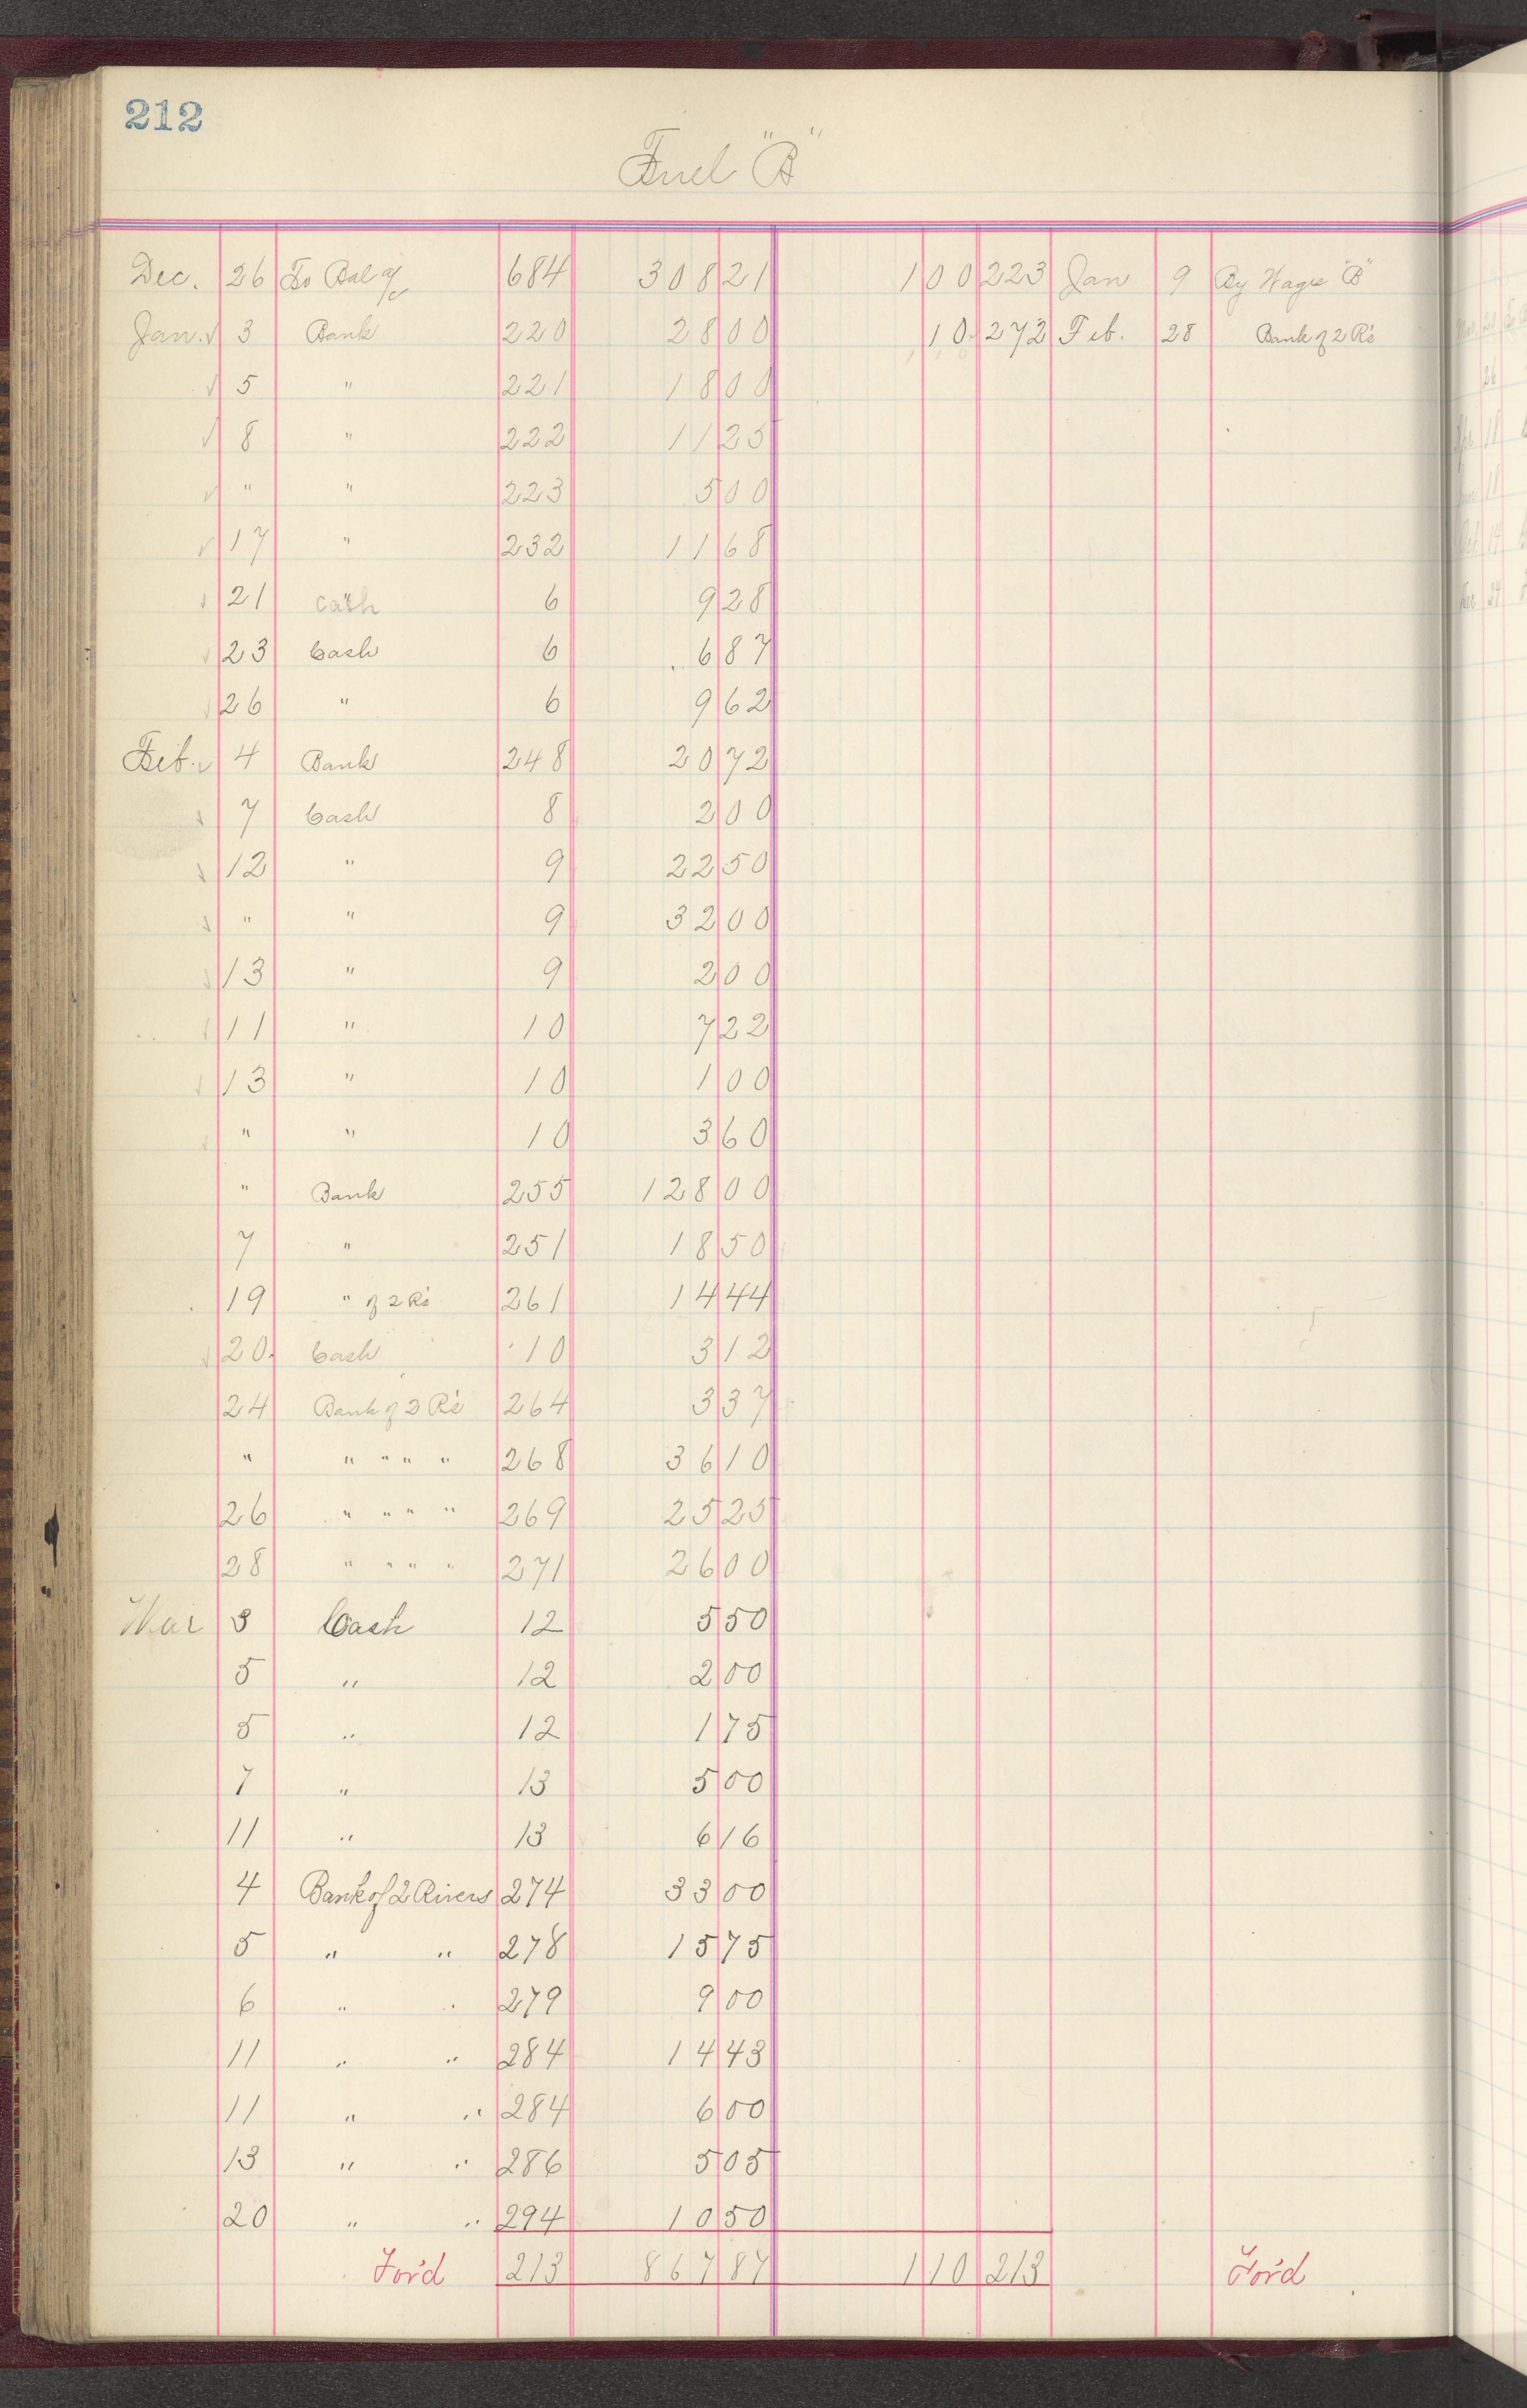 212
Fuel "B"
Dec. 26 To Bal a/c 684 308 21 1 00 223 Jan 9 By Wages "B"
Jan. ✓ 3 Bank 220 28 00 10 272 Feb. 28 Bank of 2 R's
✓ 5 " 221 18 00
✓ 8 " 222 11 25
✓ " " 223 5 00
✓ 17 " 232 11 68
✓ 21 cash 6 9 28
✓ 23 Cash 6 6 87
✓ 26 " 6 9 62
Feb. ✓ 4 Bank 248 20 72
✓ 7 Cash 8 2 00
✓ 12 " 9 22 50
✓ " " 9 32 00
✓ 13 " 9 2 00
✓ 11 " 10 7 22
✓ 13 " 10 1 00
✓ " " 10 3 60
" Bank 255 128 00
7 " 251 18 50
19 " of 2 R's 261 14 44
✓ 20. Cash 10 3 12
24 Bank of 2 R's 264 3 37
" " " " " 268 36 10
26 " " " " 269 25 25
28 " " " " 271 26 00
Mar 3 Cash 12 5 50
5 " 12 2 00
5 " 12 1 75
7 " 13 5 00
11 " 13 6 16
4 Bank of 2 Rivers 274 33 00
5 " " 278 15 75
6 " " 279 9 00
11 " " 284 14 43
11 " " 284 6 00
13 " " 286 5 05
20 " " 294 10 50
For'd 213 867 87 1 10 213 For'd